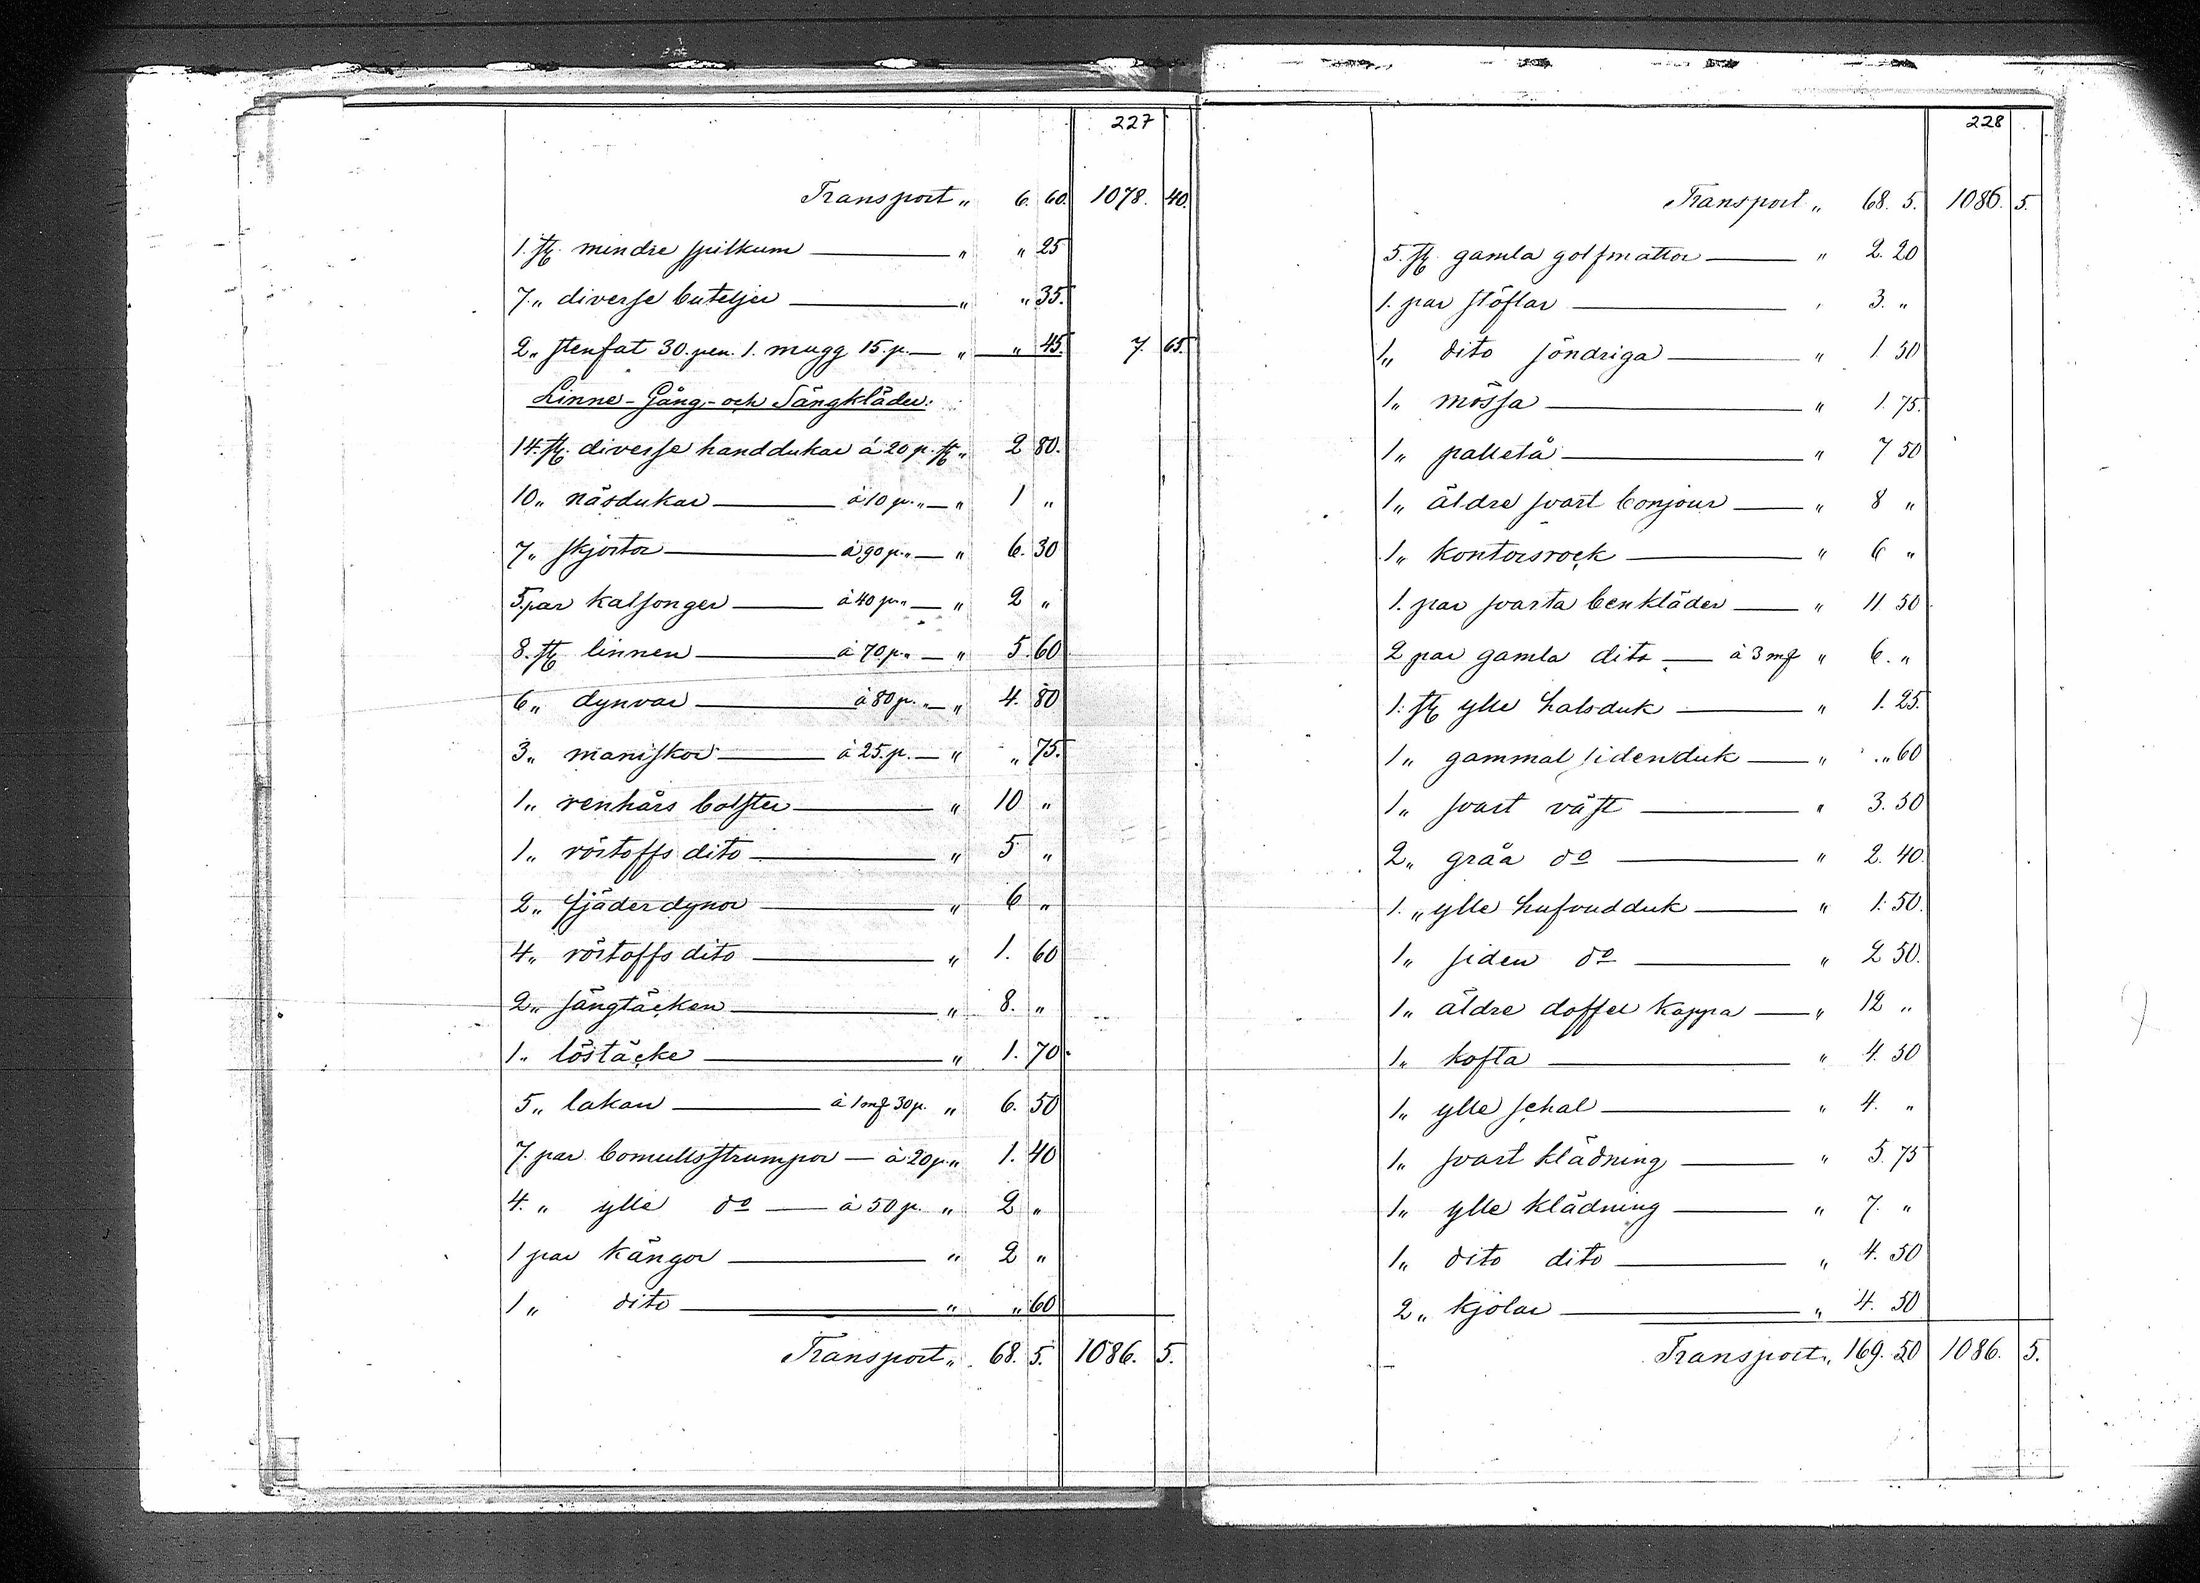 227
Transport „ 6. 60. 1078. 40.
1. st. mindre spilkum — „ „ 25
7 „ diverse buteljer — „ „ 35.
2 „ stenfat 30. pen. 1. mugg 15. p. — „ „ 45. 7. 65.
Linne- Gång- och Sängkläder:
14. st. diverse handdukar á 20 p. st „ 2 80.
10 „ näsdukar — á 10 p. „ — „ 1 „
7 „ skjortor — á 90 p. „ — „ 6. 30
5. par kalsonger — á 40 p. „ — „ 2 „
8. st. linnen — á 70 p. „ — „ 5. 60
6 „ dynvar — á 80 p. „ — „ 4. 80
3 „ maniskor — á 25. p. — „ „ 75.
1 „ renhårs bolster — „ 10 „
1 „ röstoffs dito — „ 5 „
2 „ fjäderdynor — „ 6 „
4 „ röstoffs dito — „ 1. 60
2 „ sängtäcken — „ 8. „
1 „ löstäcke — „ 1. 70.
5 „ lakan — á 1 mf 30 p. „ 6. 50
7. par bomullsstrumpor — á 20 p. „ 1. 40
4. „ ylle do — á 50 p. „ 2 „
1 par kängor — „ 2 „
1 „ dito — „ „ 60
Transport „ 68. 5. 1086. 5.
228
Transport „ 68. 5. 1086. 5.
5. st. gamla golfmattor — „ 2. 20
1. par stöflar — „ 3. „
1 „ dito söndriga — „ 1 50
1 „ mössa — „ 1. 75.
1 „ palletå — „ 7 50
1 „ äldre svart bonjour — „ 8 „
1 „ kontorsrock — „ 6 „
1. par svarta benkläder — „ 11 50
2 par gamla dito — á 3 mf „ 6. „
1. st ylle halsduk — „ 1. 25.
1 „ gammal sidenduk — „ „ 60
1 „ svart väst — „ 3. 50
2 „ gråa do — „ 2. 40.
1. „ ylle hufvudduk — „ 1. 50.
1 „ siden do — „ 2 50.
1 „ äldre doffel kappa — „ 12 „
1 „ kofta — „ 4. 50
1 „ ylle schal — „ 4. „
1 „ svart klädning — „ 5. 75
1 „ ylle klädning — „ 7. „
1 „ dito dito — „ 4. 50
2 „ kjolar — „ 4. 50
Transport „ 169. 50 1086. 5.